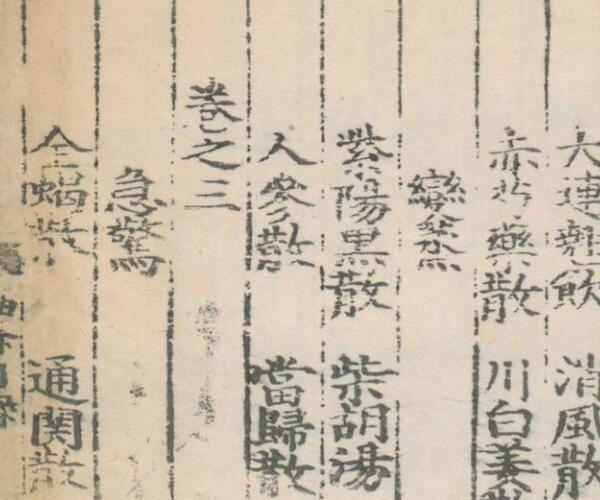 大連翹飲 消風散
赤芍藥散 川白姜
變蒸
紫陽黒散 柴胡湯
人參散 當歸散
卷之三
急驚
全蝎散 通関散